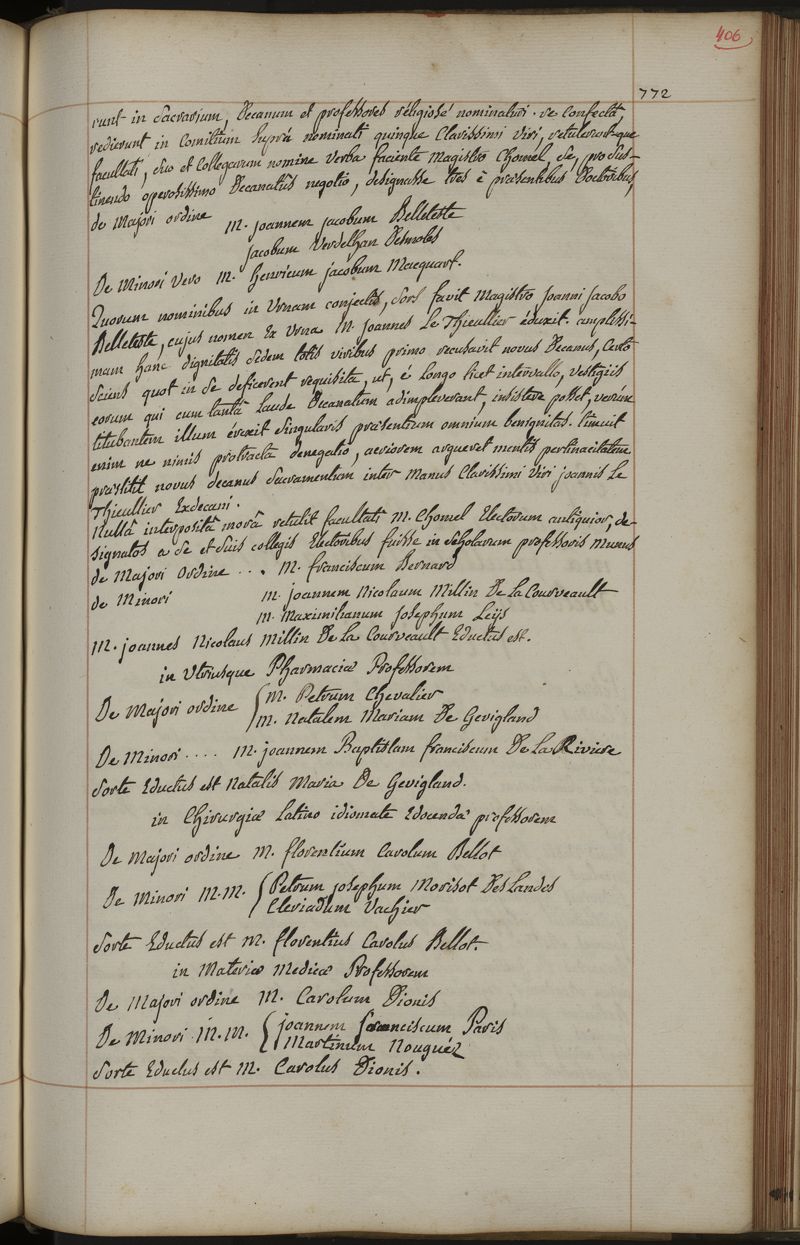 406
772
runt in Sacrarium, Decanum et professores réligiosé nominaturi. re Confectâ,
redierunt in Comitium Suprà nominati quinque Clarissimi Viri, retulerunt que
facultati, Suo et Collegarum nomine Verba faciente Magistro Chomel, Se, pro Sus-
tinendo operosissimo Decanatûs negotio, designasse tres è præsentibus Doctoribus,
de Majori ordine M. joannem jacobum Belleteste
jacobum Verdelhan Desmoles
De Minori Vero M. henricum jacobum Macquart.
Quorum nominibus in Urnam conjectis, Sors favit Magistro Joanni Jacobo
Belleteste, cujus nomen Ex Urna M. joannes Le Thieullier éduxit. amplissi-
mam hanc dignitatis Sedem totis viribus primo recusavit novus Decanus, Certò
Sciens quot in Se deficerent requisita, ut, é Longo licet intervallo, vestigiis
eorum qui cum tantâ Laude Decanatum adimpleverant, insistere posset, verùm
titubantem illum érexit Singularis præsentium omnium benignitas. timuit
enim ne nimis protracta denegatio, acriorem argueret mentis pertinacitatem
præstitit novus decanus Sacramentum inter Manus Clarissimi Viri joannis Le
Thieullier Exdecani.
Nullâ interpositâ morâ retulit facultati M. Chomel Electorum antiquior, de-
signatos a Se et Suis collegis Electoribus fuisse in Scholarum professoris Munus
de Majori Ordine . . . M. franciscum Bernard
de Minori M. joannem Nicolaum Millin De La Courveault
M. Maximilianum Josephum Leÿs
M. joannes Nicolaus Millin De La Courveault Eductus est.
in Utriusque Pharmaciæ Professorem
De Majori ordine { M. Petrum Chevalier
M. Natalem Mariam De Gevigland
De Minori . . . . M. joannem Baptistam franciscum De La Riviere
Sorte Eductus est Natalis Maria De Gevigland.
in Chirurgiæ Latino idiomate Edocendæ professorem
De Majori ordine M. florentium Carolum Bellot
De Minori M.M. { Petrum josephum Morisot DesLandes
Cleriadum Vachier
Sorte Eductus est M. florentius Carolus Bellot.
in Materiæ Medicæ Professorem
De Majori ordine M. Carolum Dionis
De Minori M.M. { joannem franciscum Paris
Martinum Nouguéz
Sorte Eductus est M. Carolus Dionis.